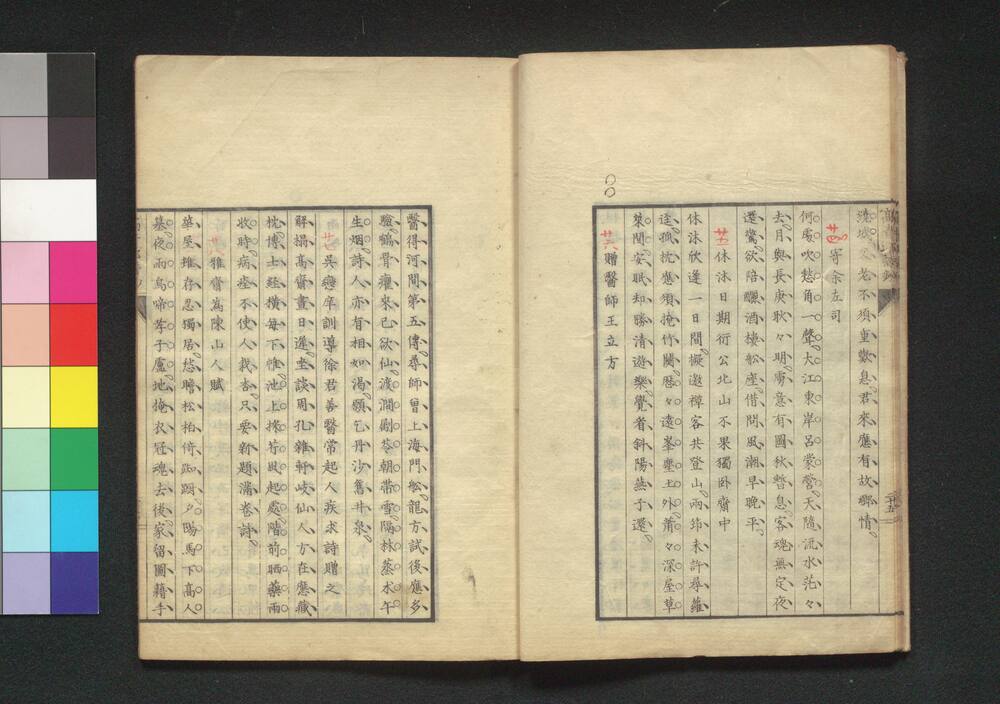 不須重歎息君來應有故鄉情
廿四 寄余左司
何處吹愁角一聲大江東岸呂蒙營天隨流水茫々
去月與長庚耿々明虜意有圖秋暫息客魂無定夜
還驚欲陪釃酒樓船座借問風潮早晚平
廿五 休沐日期衍公北山不果獨卧齋中
休沐欣逢一日間擬邀禪客共登山雨非未許尋蘿
逕孤枕應須掩竹關歷々遠峯塵土外蕭々深屋草
萊間安眠却勝清遊樂覺看斜陽燕子還
廿六 贈醫師王立方
二十五
醫得河間第五傳尋師曾上海門船龍方試後應多
驗鶴骨癯來已欲仙渡澗斸苓朝帶雪隔林蒸朮午
生烟詩人亦有相如渴願乞丹沙舊井泉
廿七 吳瘿卒訓導徐君善醫常起人疾求詩贈之
解榻高齋晝日邀坐談周孔雜軒岐仙人方在應藏
枕博士經橫每下帷池上採荇風起處階前晒藥雨
收時病痊不使人栽杏只要新題滿卷詩
廿八 雅齋爲陳山人賦
華屋雖存忍獨居愁瞻松柏倚踟躕夕陽馬下高人
墓夜雨烏啼孝子廬地掩衣冠魂去後家留圖籍手